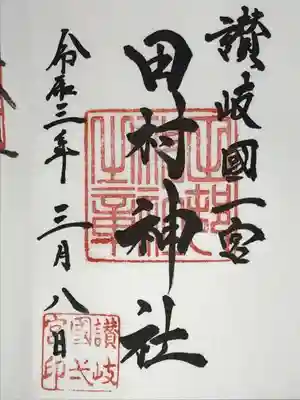 讃岐國一宮
田村神社
令和三年 三月 八日
讃岐
國弌
宮印